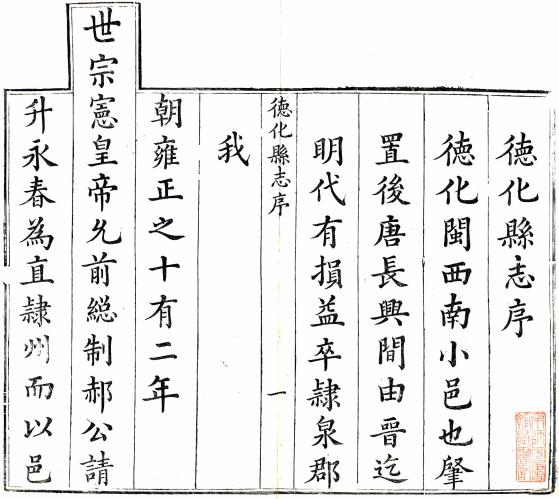 德化縣志序
德化閩西南小邑也肇
置後唐長興間由晉迄
明代有損益卒隷泉郡
德化縣志序
一
我
朝雍正之十有二年
世宗憲皇帝允前縂制郝公請
升永春為直隷州而以邑